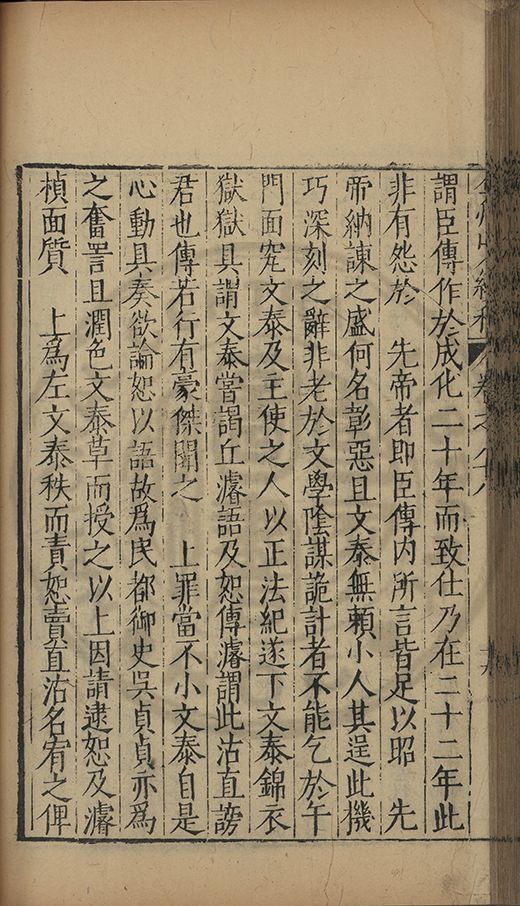 謂臣傳作於成化二十年而致仕乃在二十二年此
非有怨於　先帝者即臣傳内所言皆足以昭　先
帝納諫之盛何名彰惡且文泰無賴小人其逞此機
巧深刻之辭非老於文學陰謀詭計者不能乞於午
門面究文泰及主使之人以正法紀遂下文泰錦衣
獄獄具謂文泰嘗謁丘濬語及恕傳濬謂此沽直謗
君也傳若行有豪傑聞之　上罪當不小文泰自是
心動具奏欲論恕以語故爲民都御史吳貞貞亦爲
之奮詈且潤色文泰草而授之以上因請逮恕及濬
楨面質　上爲左文泰秩而責恕賣直沽名宥之俾